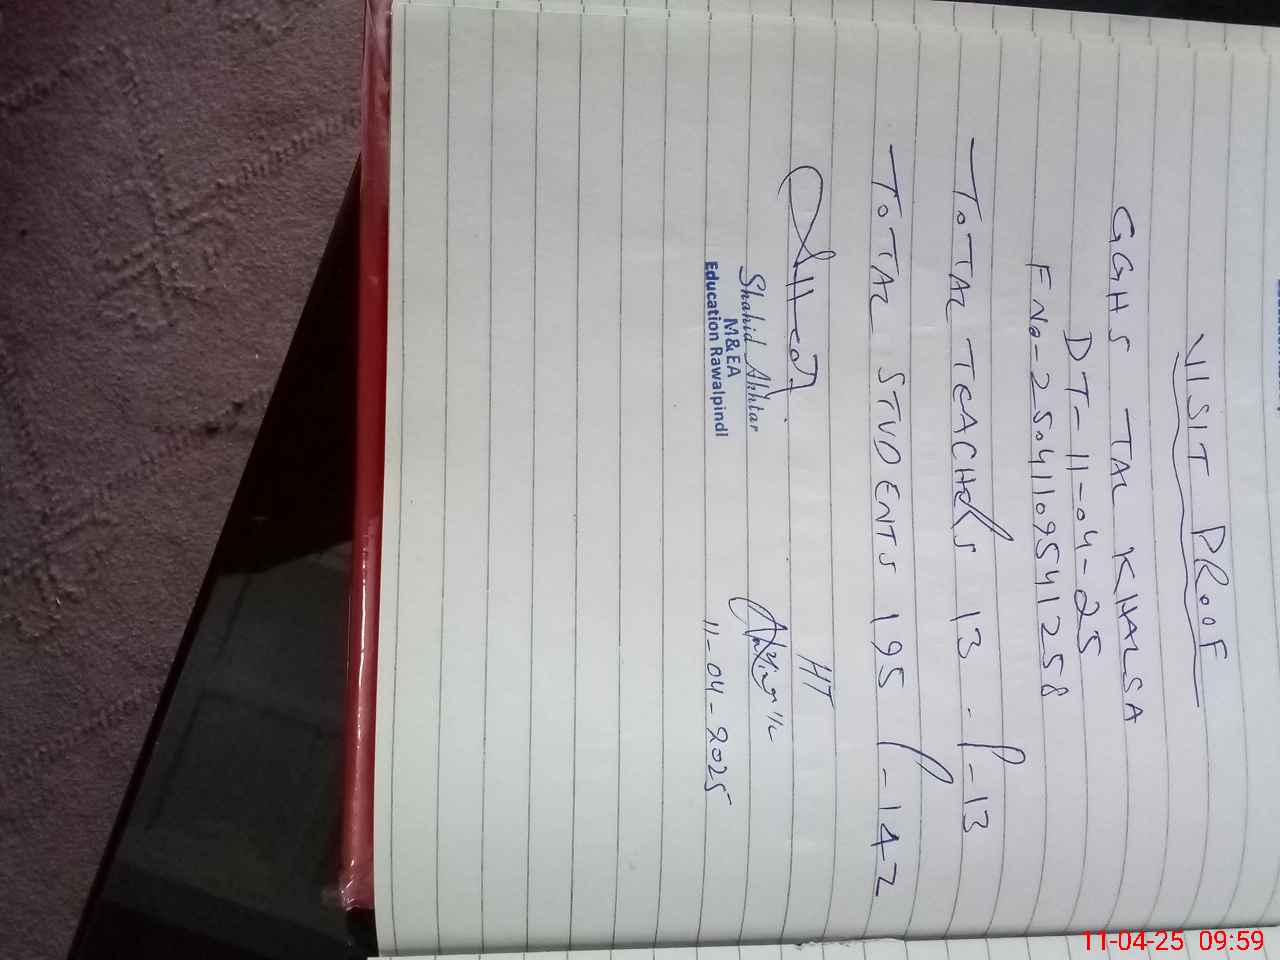 VISIT PROOF
GGHS TAL KHALSA
DT-11-04-25
F No-25041109541258
TOTAL TEACHERS 13 - P-13
TOTAL STUDENTS 195 P-142
HT
Shahid Akhtar
M&EA
Education Rawalpindi
11-04-2025
11-04-25 09:59